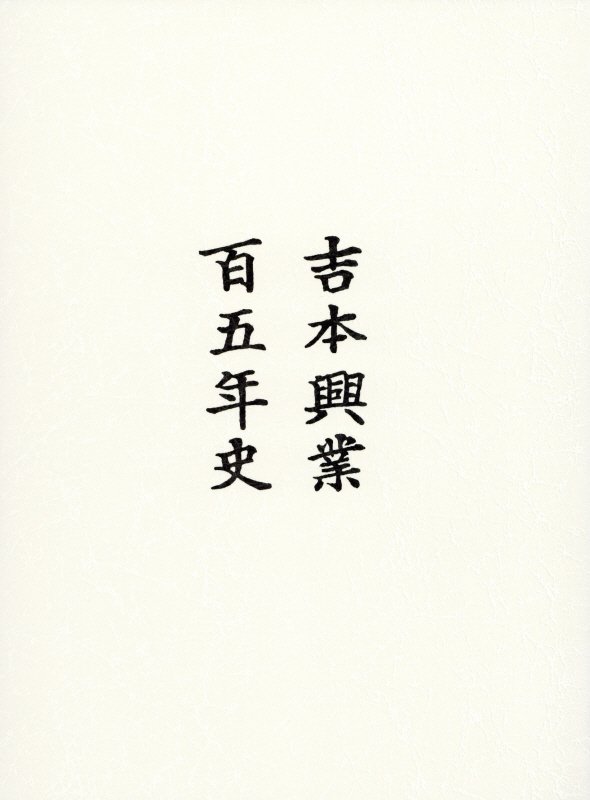 吉本興業
百五年史